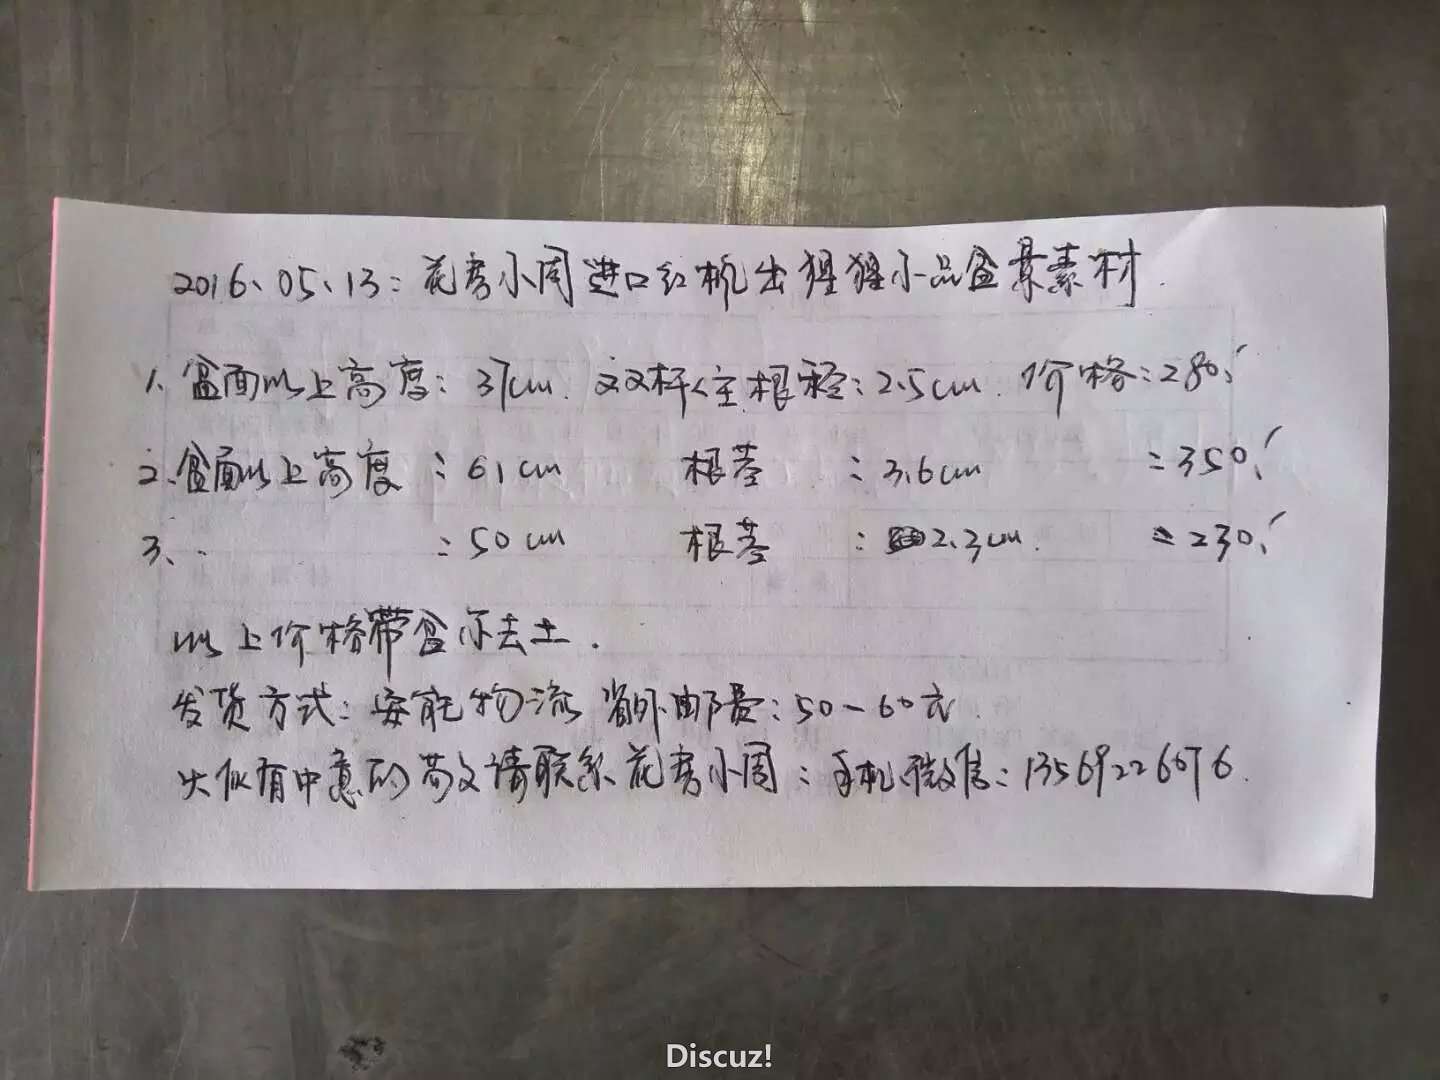 2016、05、13：花房小周进口红枫出猩猩小品盆景素材.
1、盆面以上高度：37cm. 双杆(主根径：2.5cm. 价格：280.
2、盆面以上高度：61cm 根茎：3.6cm ：350.
3、 ：50cm 根茎：2.3cm. ：230.
以上价格带盆不去土.
发货方式：安能物流 省外邮费：50-60元.
有中意的苗请联系花房小周：手机、微信：13569226076.
Discuz!